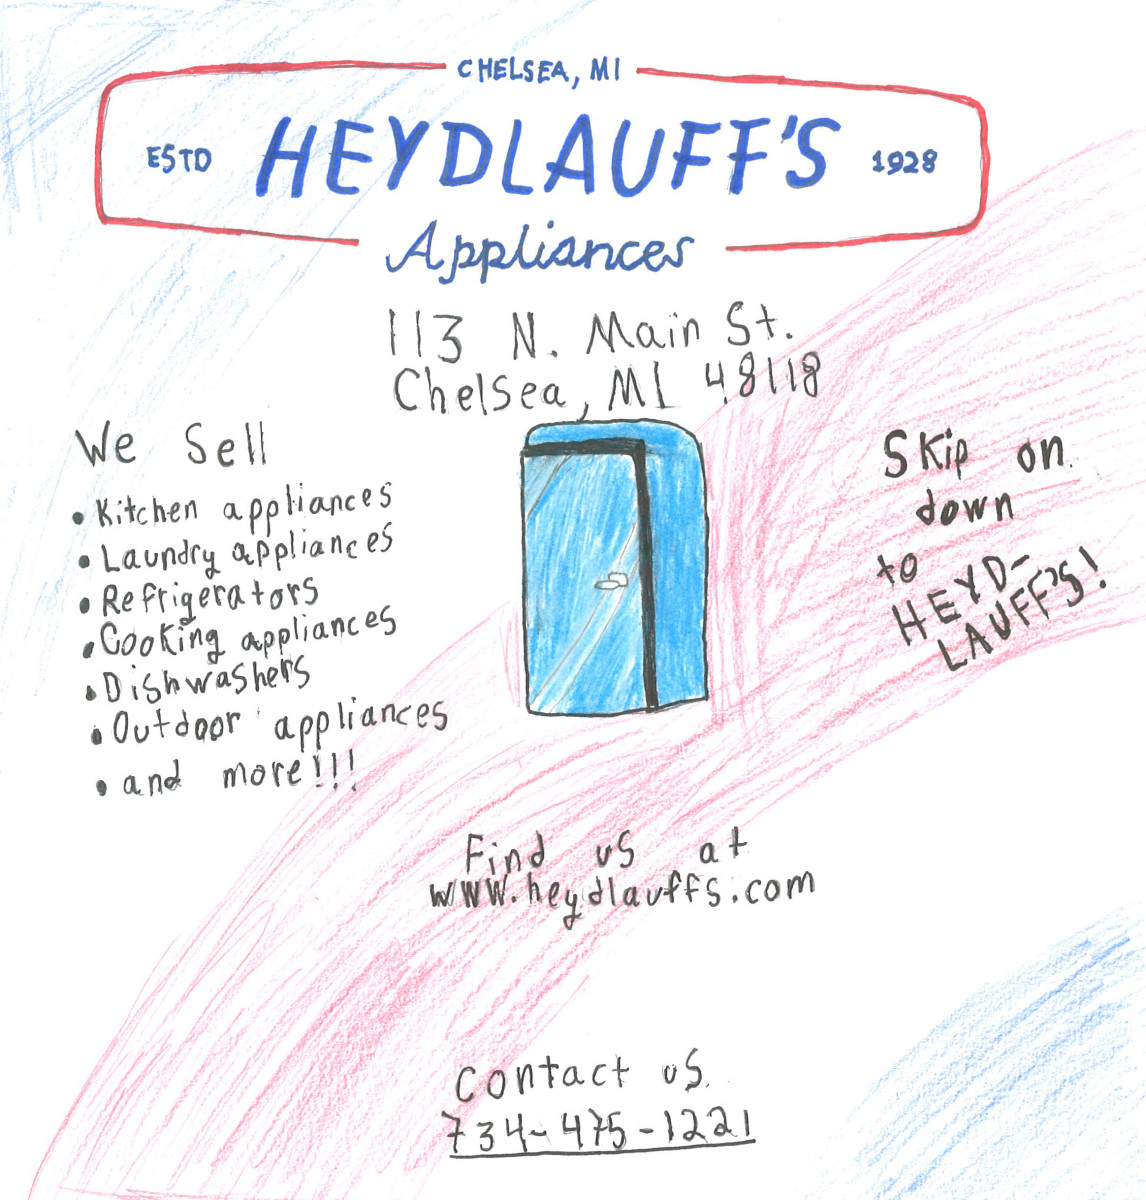 CHELSEA, MI
ESTD HEYDLAUFF'S 1928
Appliances
113 N. Main St.
Chelsea, MI 48118
We Sell
• Kitchen appliances
• Laundry appliances
• Refrigerators
• Cooking appliances
• Dishwashers
• Outdoor appliances
• and more!!!
Skip on
down
to
HEYD-
LAUFF'S!
Find us at
www.heydlauffs.com
Contact us
734-475-1221